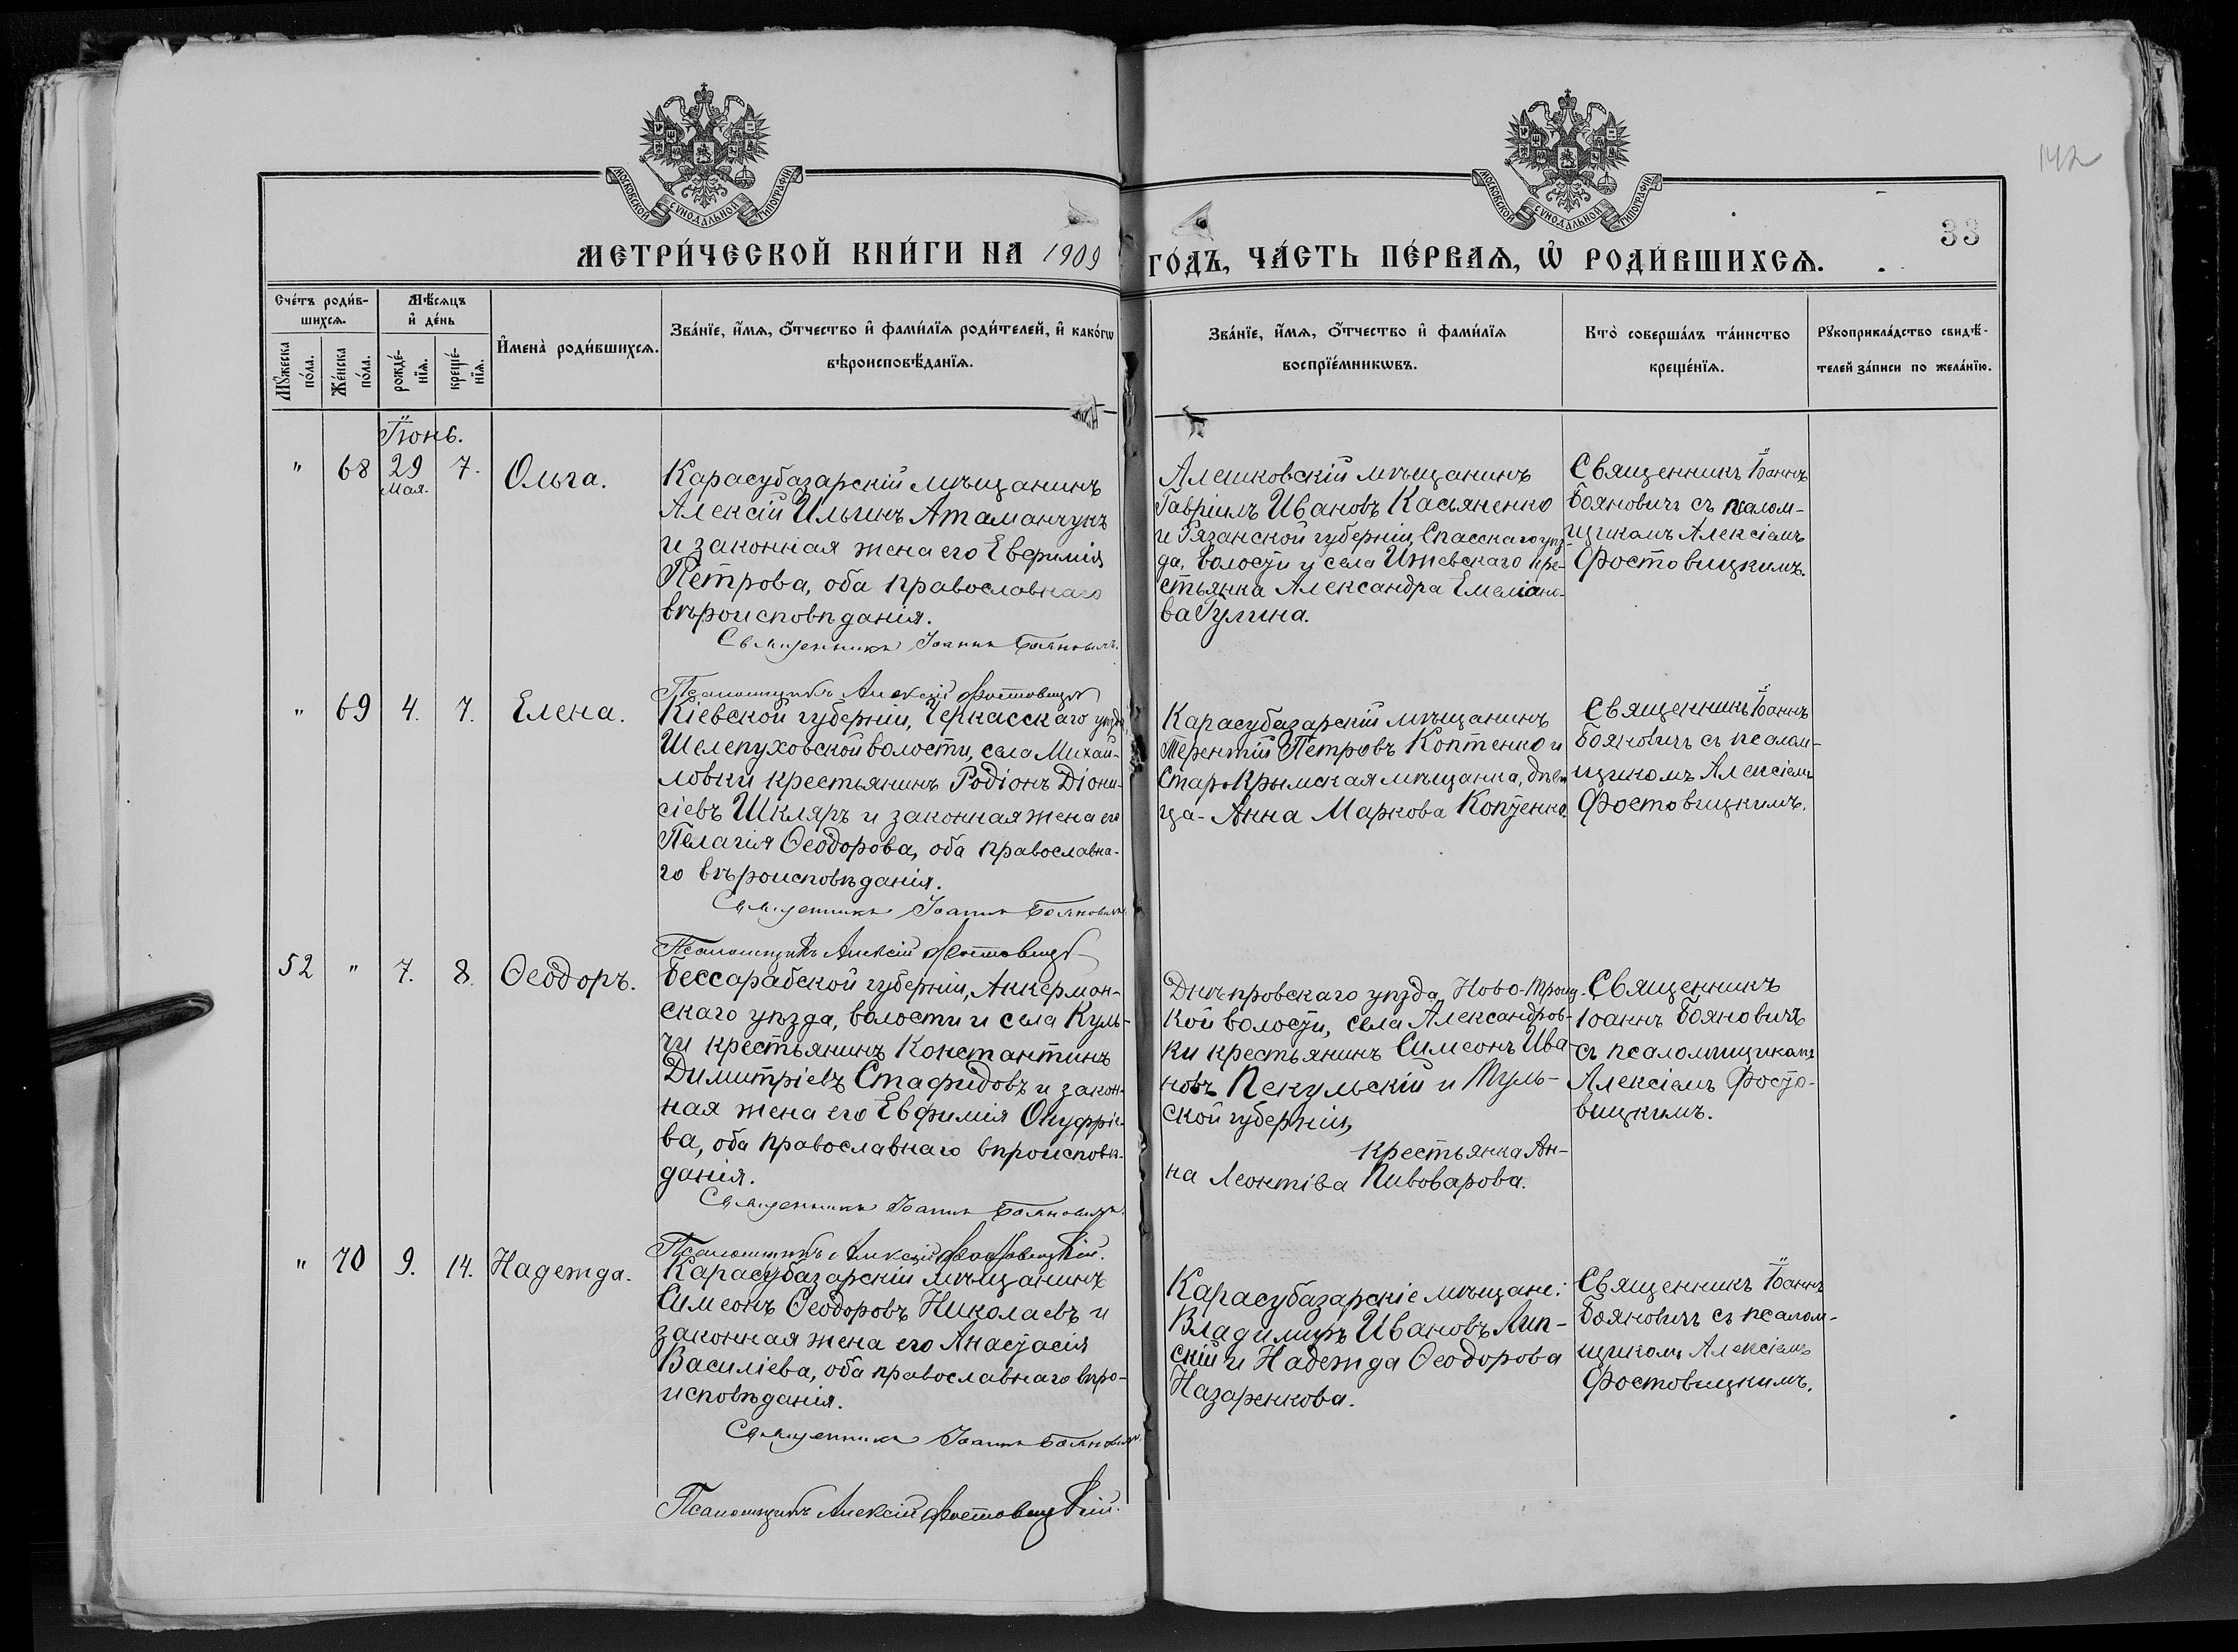 142
33
МОСКОВСКОЙ СѴНОДАЛЬНОЙ ТИПОГРАФІИ
МОСКОВСКОЙ СѴНОДАЛЬНОЙ ТИПОГРАФІИ
МЕТРИ́ЧЕСКОЙ КНИ́ГИ НА 1909 ГО́ДЪ, ЧА́СТЬ ПЕ́РВАѦ, Ѽ РОДИ́ВШИХСѦ.
Сче́тъ роди́в-
шихсѧ.
Мꙋ́жеска по́ла.
Же́нска по́ла.
Мѣ́сѧцъ
и҆ де́нь
рожде́-
нїѧ.
креще́-
нїѧ.
И҆мена̀ роди́вшихсѧ.
Зва́нїе, и҆́мѧ, ѻ҆́тчество и҆ фами́лїѧ роди́телей, и҆ како́гѡ
вѣроисповѣ́данїѧ.
Зва́нїе, и҆́мѧ, ѻ҆́тчество и҆ фами́лїѧ
воспрїе́мникѡвъ.
Кто̀ соверша́лъ та́инство
креще́нїѧ.
Рꙋкоприкла́дство свидѣ́-
телей за́писи по жела́нїю.
Іюнь.
" 68 29 Мая. 7. Ольга.
Карасубазарскій мѣщанинъ
Алексій Ильинъ Атаманчукъ
и законная жена его Евфимія
Петрова, оба православнаго
вѣроисповѣданія.
Священникъ Іоаннъ Бояновичъ.
Псаломщикъ Алексій Фостовицк
Алешковскій мѣщанинъ
Гавріилъ Ивановъ Касьяненко
и Рязанской губерніи, Спасскаго уѣз-
да, волости и села Ижевскаго кре-
стьянка Александра Емеліано-
ва Гулина.
Священникъ Іоаннъ
Бояновичъ съ псалом-
щикомъ Алексіемъ
Фостовицкимъ.
" 69 4. 7. Елена.
Кіевской губерніи, Черкасскаго уѣзда,
Шелепуховской волости, села Михай-
ловки крестьянинъ Родіонъ Діони-
сіевъ Шкляръ и законная жена его
Пелагія Ѳеодорова, оба православна-
го вѣроисповѣданія.
Священникъ Іоаннъ Бояновичъ.
Псаломщикъ Алексій Фостовицк
Карасубазарскій мѣщанинъ
Терентій Петровъ Коптенко и
Старокрымская мѣщанка, дѣви-
ца - Анна Маркова Коптенко.
Священникъ Іоаннъ
Бояновичъ съ псалом-
щикомъ Алексіемъ
Фостовицкимъ.
52 " 7. 8. Ѳеодоръ.
Бессарабской губерніи, Аккерман-
скаго уѣзда, волости и села Куль-
чи крестьянинъ Константинъ
Димитріевъ Стафидовъ и закон-
ная жена его Евфимія Онуфріе-
ва, оба православнаго вѣроисповѣ-
данія.
Священникъ Іоаннъ Бояновичъ.
Псаломщикъ Алексій Фостовицкій.
Днѣпровскаго уѣзда, Ново-Троиц-
кой волости, села Александров-
ки крестьянинъ Симеонъ Ива-
новъ Пекульскій и Туль-
ской губерніи,
крестьянка Ан-
на Леонтіва Пивоварова.
Священникъ
Іоаннъ Бояновичъ
съ псаломщикомъ
Алексіемъ Фосто-
вицкимъ.
" 70 9. 14. Надежда.
Карасубазарскій мѣщанинъ
Симеонъ Ѳеодоровъ Николаевъ и
законная жена его Анастасія
Василіева, оба православнаго вѣро-
исповѣданія.
Священникъ Іоаннъ Бояновичъ.
Псаломщикъ Алексій Фостовицкій.
Карасубазарскіе мѣщане:
Владимиръ Ивановъ Лип-
скій и Надежда Ѳеодорова
Назаренкова.
Священникъ Іоаннъ
Бояновичъ съ псалом-
щикомъ Алексіемъ
Фостовицкимъ.